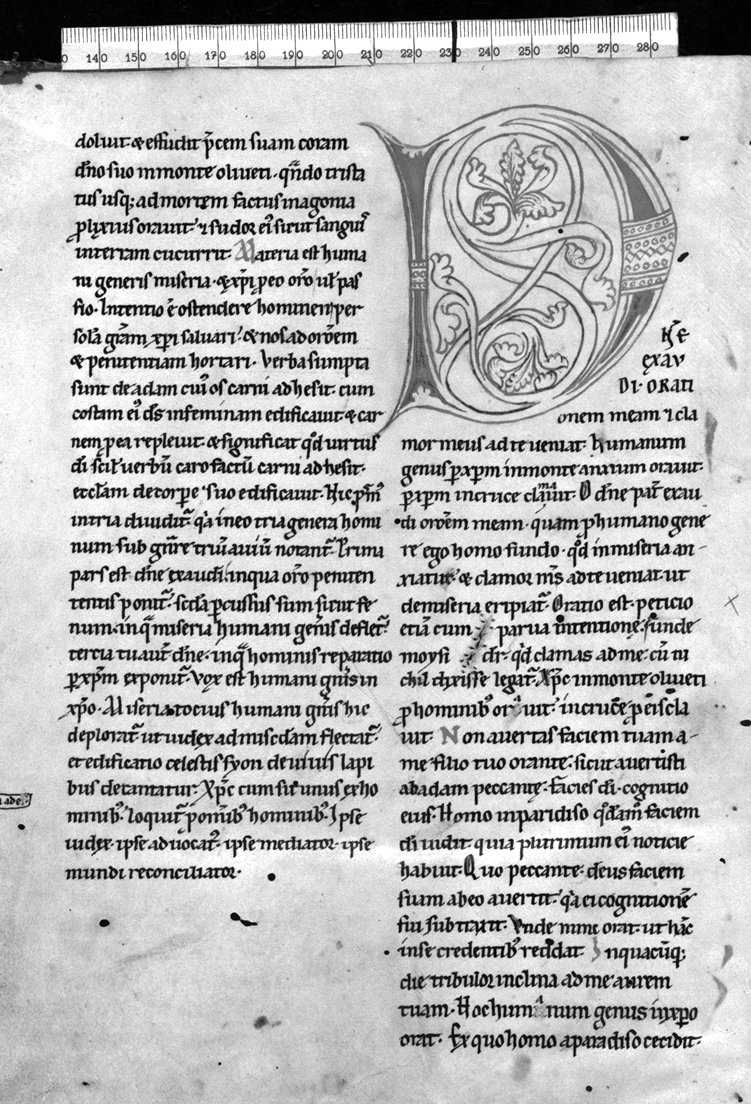 140 150 160 170 180 190 200 210 220 230 240 250 260 270 280
doluit & effudit p̄cem suam coram
dño suo in monte oliueti · qñdo trista
tus usq; ad mortem factus in agonia
ꝓlixius orauit · ⁊ sudor ei᷒ sicut sanguis
in terram cucurrit · Materia est huma
ni generis miseria · & xp̄i ꝓ eo or̄o uł pas
sio · Intentio ē ostendere hominem per
solā gr̄am xp̄i saluari · & nos ad or̄oem
& penitentiam hortari · Verba sumpta
sunt de adam cui᷒ os carni adhesit · cum
costam ei᷒ ds̄ in feminam edificauit & car
nem ꝓ ea repleuit & significat qd̄ uirtus
di scił uerbū caro factū carni adhesit ·
et ecclam de corpe suo edificauit · Hic psm̄
in tria diuidit᷒ q̄a in eo tria genera homi
num sub gn̄re triū auiū notant᷒ · Prima
pars est · dñe exaudi · in qua or̄o peniten
tentis ponit᷒ · scda ꝑcussus sum sicut fe
num · in q̄ miseria humani gen̄is deflet᷒
tercia tu aut̄ dñe · in q̄ hominis reparatio
ꝑ xp̄m exponit᷒ · Vox est humani gn̄is in
xp̄o · Miseria tocius humani gn̄is hic
deplorat᷒ ut iudex ad misc̄dam flectat᷒ ·
et edificatio celestis syon de uiuis lapi
bus decantatur · Xp̄c cum sit unus ex ho
minib᷒ · loquit᷒ ꝓ omib᷒ hominib᷒ · Ipse
iudex · ipse aduocat᷒ · ipse mediator · ipse
mundi reconciliator ·
ade ·
D
NĒ
EXAU
DI · ORATI
onem meam ⁊ cla
mor meus ad te ueniat · Humanum
genus ꝑ xp̄m in monte orauit ·
ꝑ ipm in cruce clamauit · O dñe pat᷒ exau
di or̄oem meam · quam ꝓ humano gene
re ego homo fundo · qd̄ in miseria an
xiatur · & clamor ms̄ ad te ueniat · ut
de miseria eripiat᷒ · Oratio est · peticio
etiā cum parua intentione · funde
moysi dr̄ · qd̄ clamas ad me · cū tn̄
chil dixisse legat᷒ · Xp̄c in monte oliueti
ꝓ hominib᷒ orauit · in cruce ꝓ eis cla
uit · Non auertas faciem tuam a
me filio tuo orante · sicut auertisti
ab adam peccante · Facies di · cognitio
eius · Homo in paradiso q̄dam faciem
di uidit · quia plurimum ei᷒ noticie
habuit · Quo peccante · deus faciem
suam ab eo auertit · q̄a ei cognitionē
sui subtraxit · Vnde nunc orat · ut hāc
in se credentib᷒ reddat · In quacūq;
die tribulor inclina ad me aurem
tuam · Hoc humanum genus in xp̄o
orat · Ex quo homo a paradiso cecidit ·